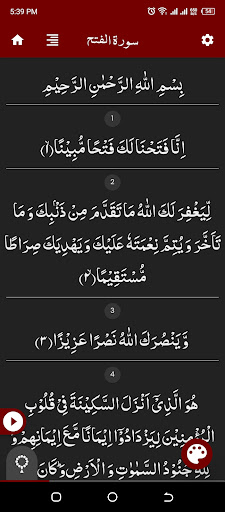 5:39 PM
سورة الفتح
بِسْمِ اللهِ الرَّحْمٰنِ الرَّحِيْمِ
1
اِنَّا فَتَحْنَا لَكَ فَتْحًا مُّبِيْنًا(۱)
2
لِّيَغْفِرَ لَكَ اللهُ مَا تَقَدَّمَ مِنْ ذَنْۢبِكَ وَ مَا
تَاَخَّرَ وَ يُتِمَّ نِعْمَتَهٗ عَلَيْكَ وَ يَهْدِيَكَ صِرَاطًا
مُّسْتَقِيْمًا(۲)
3
وَّ يَنْصُرَكَ اللهُ نَصْرًا عَزِيْزًا(۳)
4
هُوَ الَّذِيْۤ اَنْزَلَ السَّكِيْنَةَ فِيْ قُلُوْبِ
الْمُؤْمِنِيْنَ لِيَزْدَادُوْۤا اِيْمَانًا مَّعَ اِيْمَانِهِمْؕ وَ
لِلّٰهِ جُنُوْدُ السَّمٰوٰتِ وَ الْاَرْضِؕ وَ كَانَ